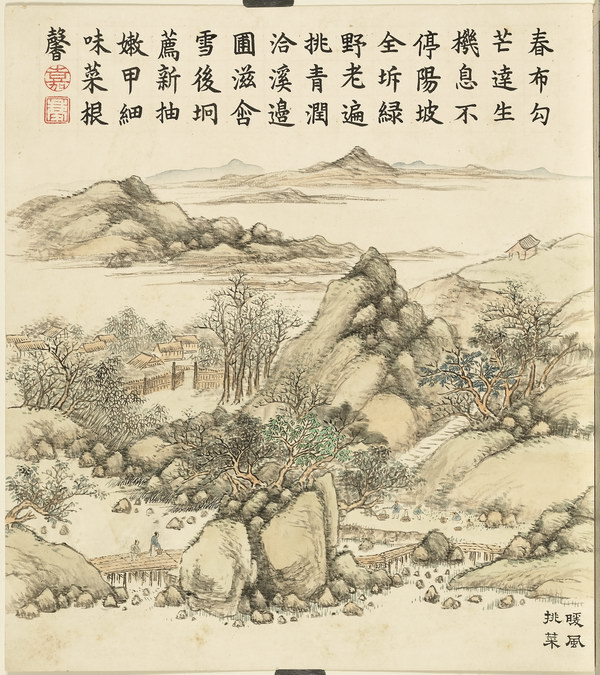 春布勾
芒達生
機息不
停陽坡
全坼緑
野老遍
挑青潤
洽溪邊
圃滋含
雪後坰
薦新抽
嫩甲細
味菜根
馨
嘉
暖風
挑菜